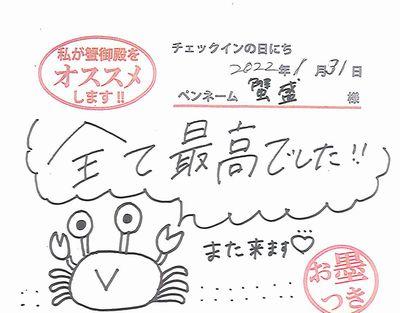 私が蟹御殿を
オススメ
します!!
チェックインの日にち
2022年1月31日
ペンネーム 蟹盛 様
全て最高でした!!
また来ます♡
お墨
つき